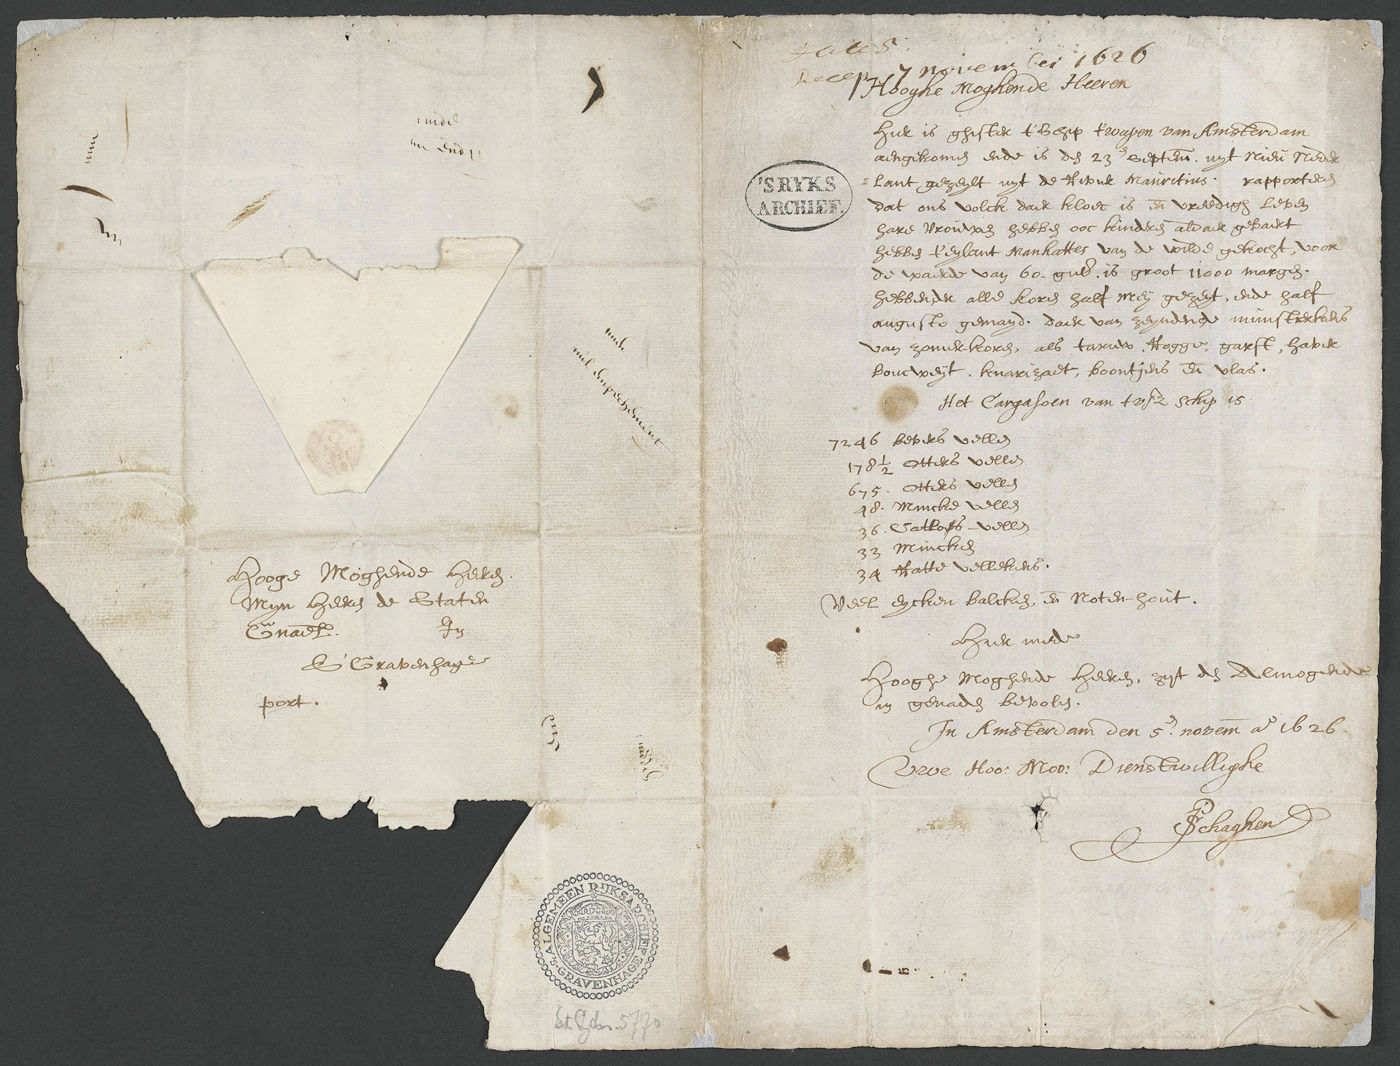 Recep. 7 novemb. 1626
Hooghe Moghende Heeren
Hier is ghister t'Schip t'wapen van Amsterdam
aengekomen ende is den 23en septem. uyt Nieu Neder
Lant gezeylt uyt de Rivier Mauritius. rapporteren
dat ons volck daer kloec is en vreedigh leven
hare Vrouwen hebben ooc kinders aldaer gebaert
hebben t'eylant Manhattes van de wilde gekocht, voor
de waerde van 60. guld. is groot 11000 margen.
hebbender alle koren half Mey gezeyt, ende half
augusto gemayd. daer van zeyndende munsterkens
van zomer-koren, als tarruw, Rogge, garst, haver
boucweyt, knarizaet, boontjens en vlas.
Het Cargasoen van tvsz Schip is
7246 bevers vellen
178½ Otters vellen
675. Otters vellen
48. Mincke vellen
36. Catloes vellen
33 Mincken
34 Ratte vellekens.
Veel eycken balcken, en Noten-hout.
Hier mede
Hooghe Moghende Heeren, zyt den Almogende
in genaden bevolen.
In Amsterdam den 5en novem ao 1626.
Uwe Hoo: Moo: Dienstwillighe
P Schaghen
'S RYKS
ARCHIEF.
Hooge Moghende Heeren.
Myn Heeren de Staten
Gnael. In
S'Gravenhage
port.
ALGEMEEN RIJKSARCHIEF
'S-GRAVENHAGE
5770